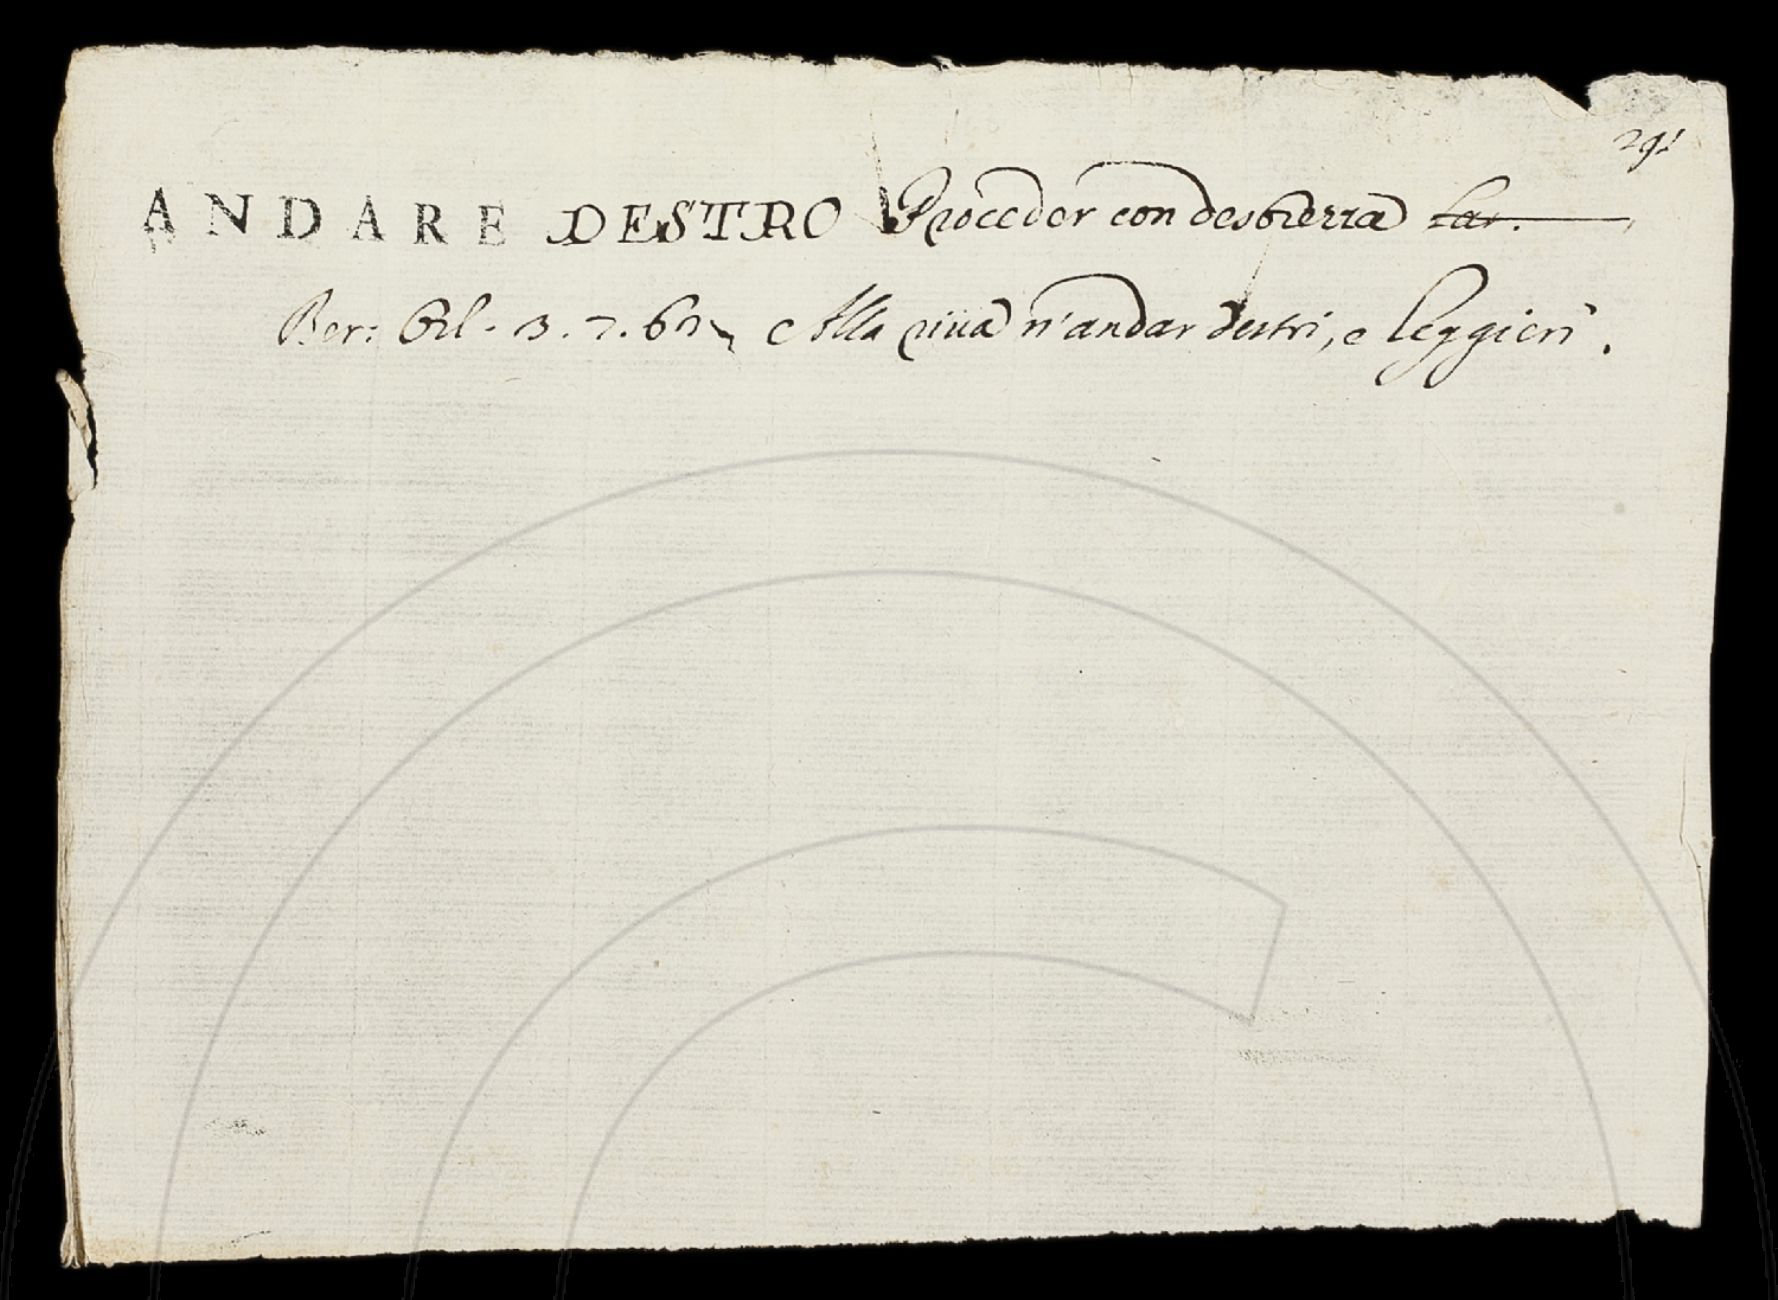 291
ANDARE DESTRO Proceder con destrezza Lat.
Ber: Orl. 3. 7. 60 Alla riua n'andar destri, e leggieri.